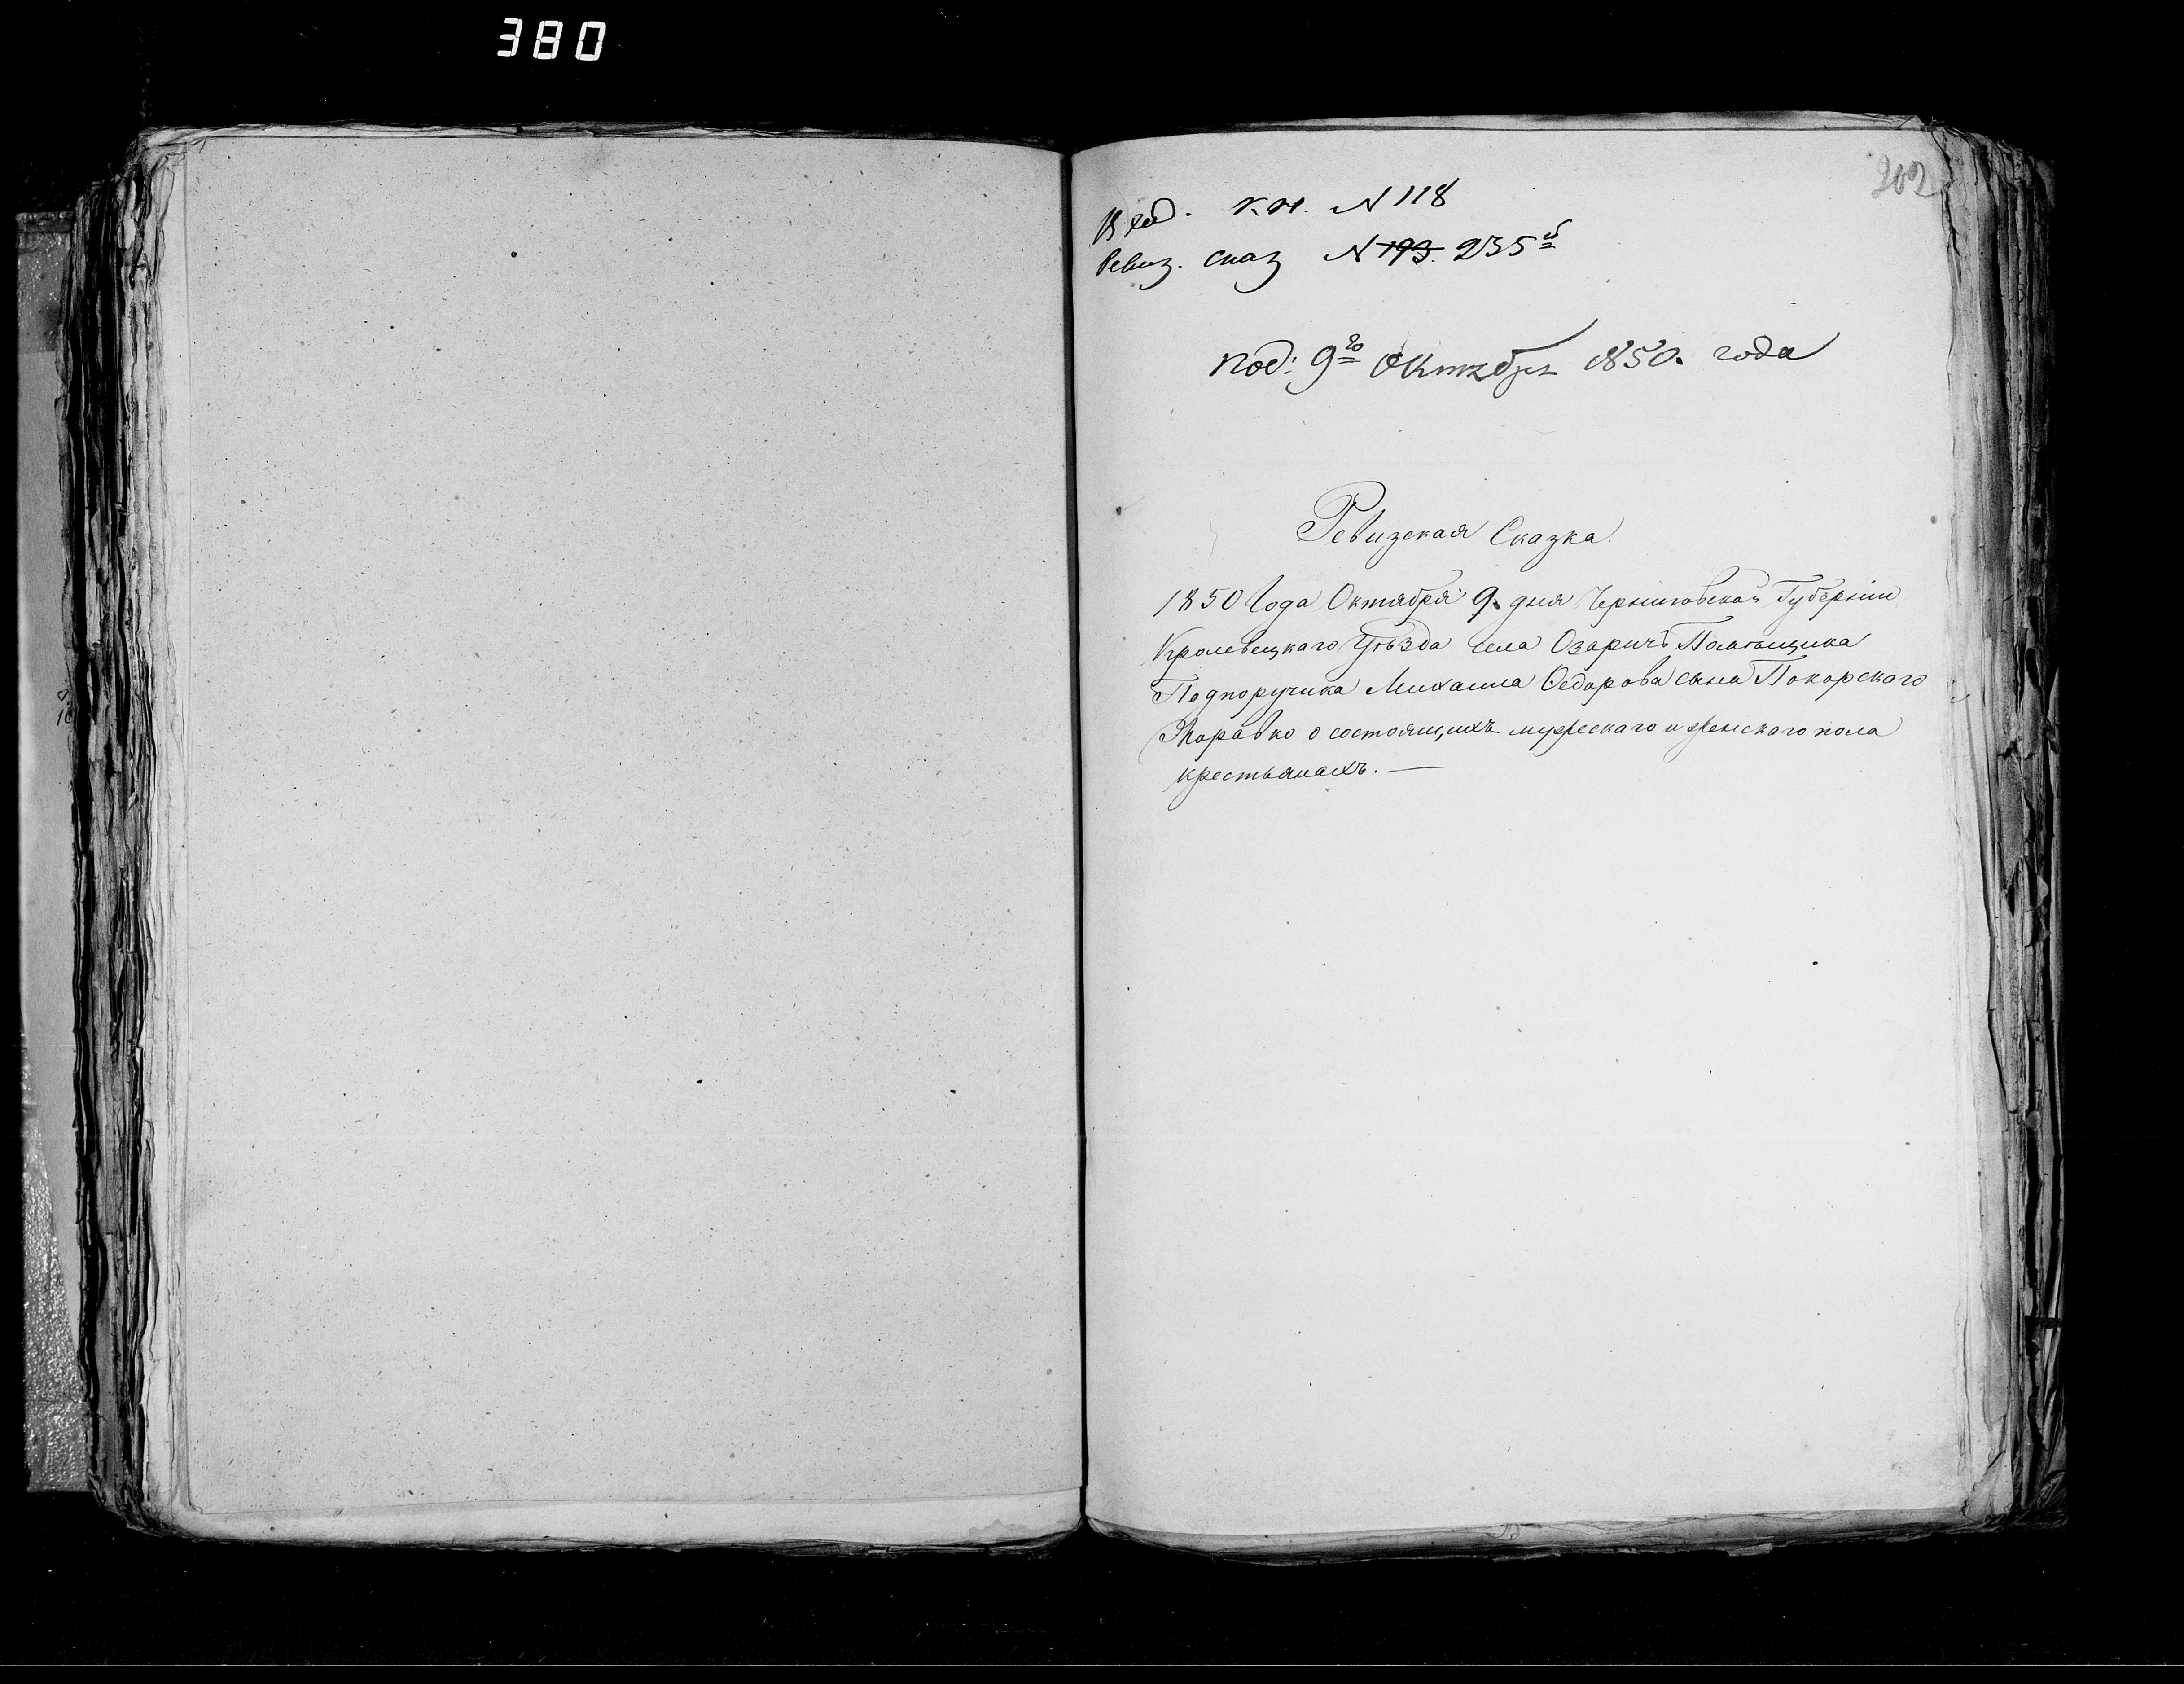 380
202
Вход. кн. N 118
Ревиз. сказ N 193. 235й
под: 9го Октября 1850. года
Ревизская Сказка.
1850 Года Октября 9. дня Черниговской Губерніи
Кролевецкаго Уѣзда села Озаричъ Помѣщика
Подпоручика Михаила Ѳедорова сына Покорского
Жоравко о состоящихъ мужескаго и женскаго пола
крестьянахъ. —